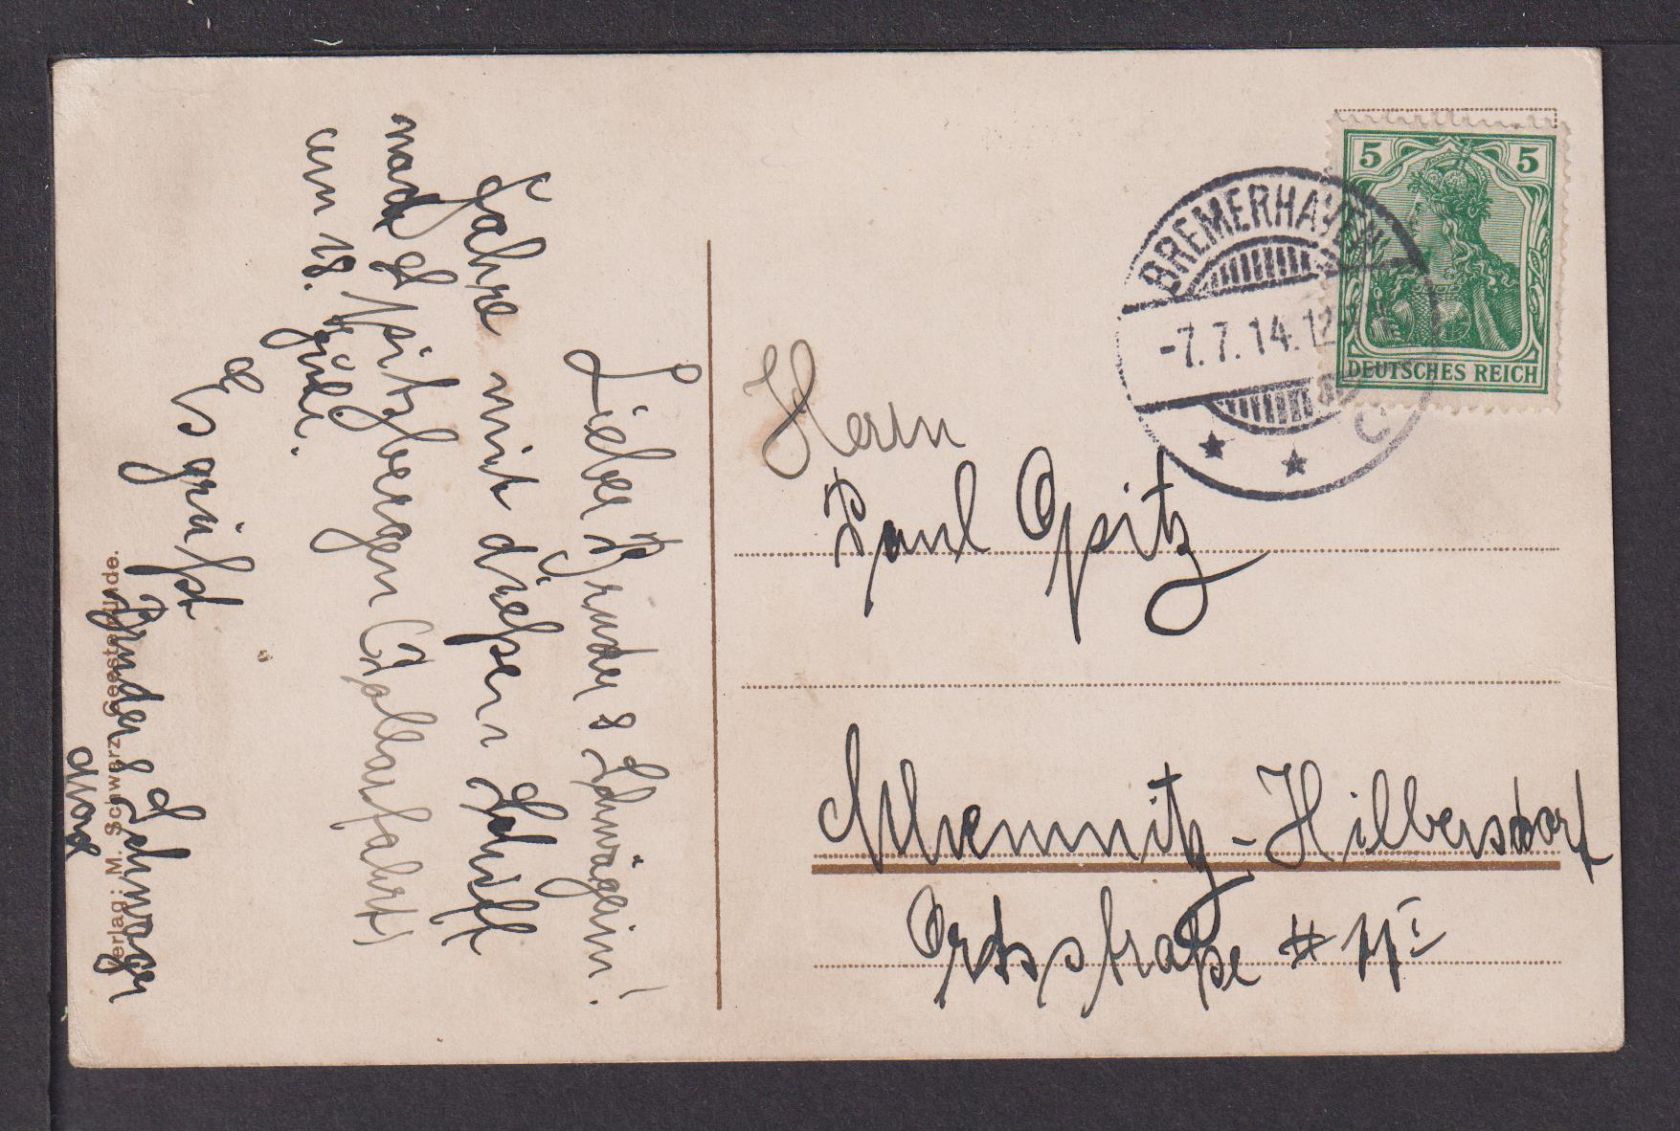 Lieber Bruder & Schwägerin!
Fahre mit diesem Schiff
nach Spitzbergen (Polarfahrt)
am 18. Juli.
Es grüßt
Bruder & Schwager
Max
Verlag: M. Schwarz, Geestemünde.
5 5
DEUTSCHES REICH
BREMERHAVEN
-7.7.14.12
C
Herrn
Paul Opitz
Chemnitz-Hilbersdorf
Ortsstraße # 11 I